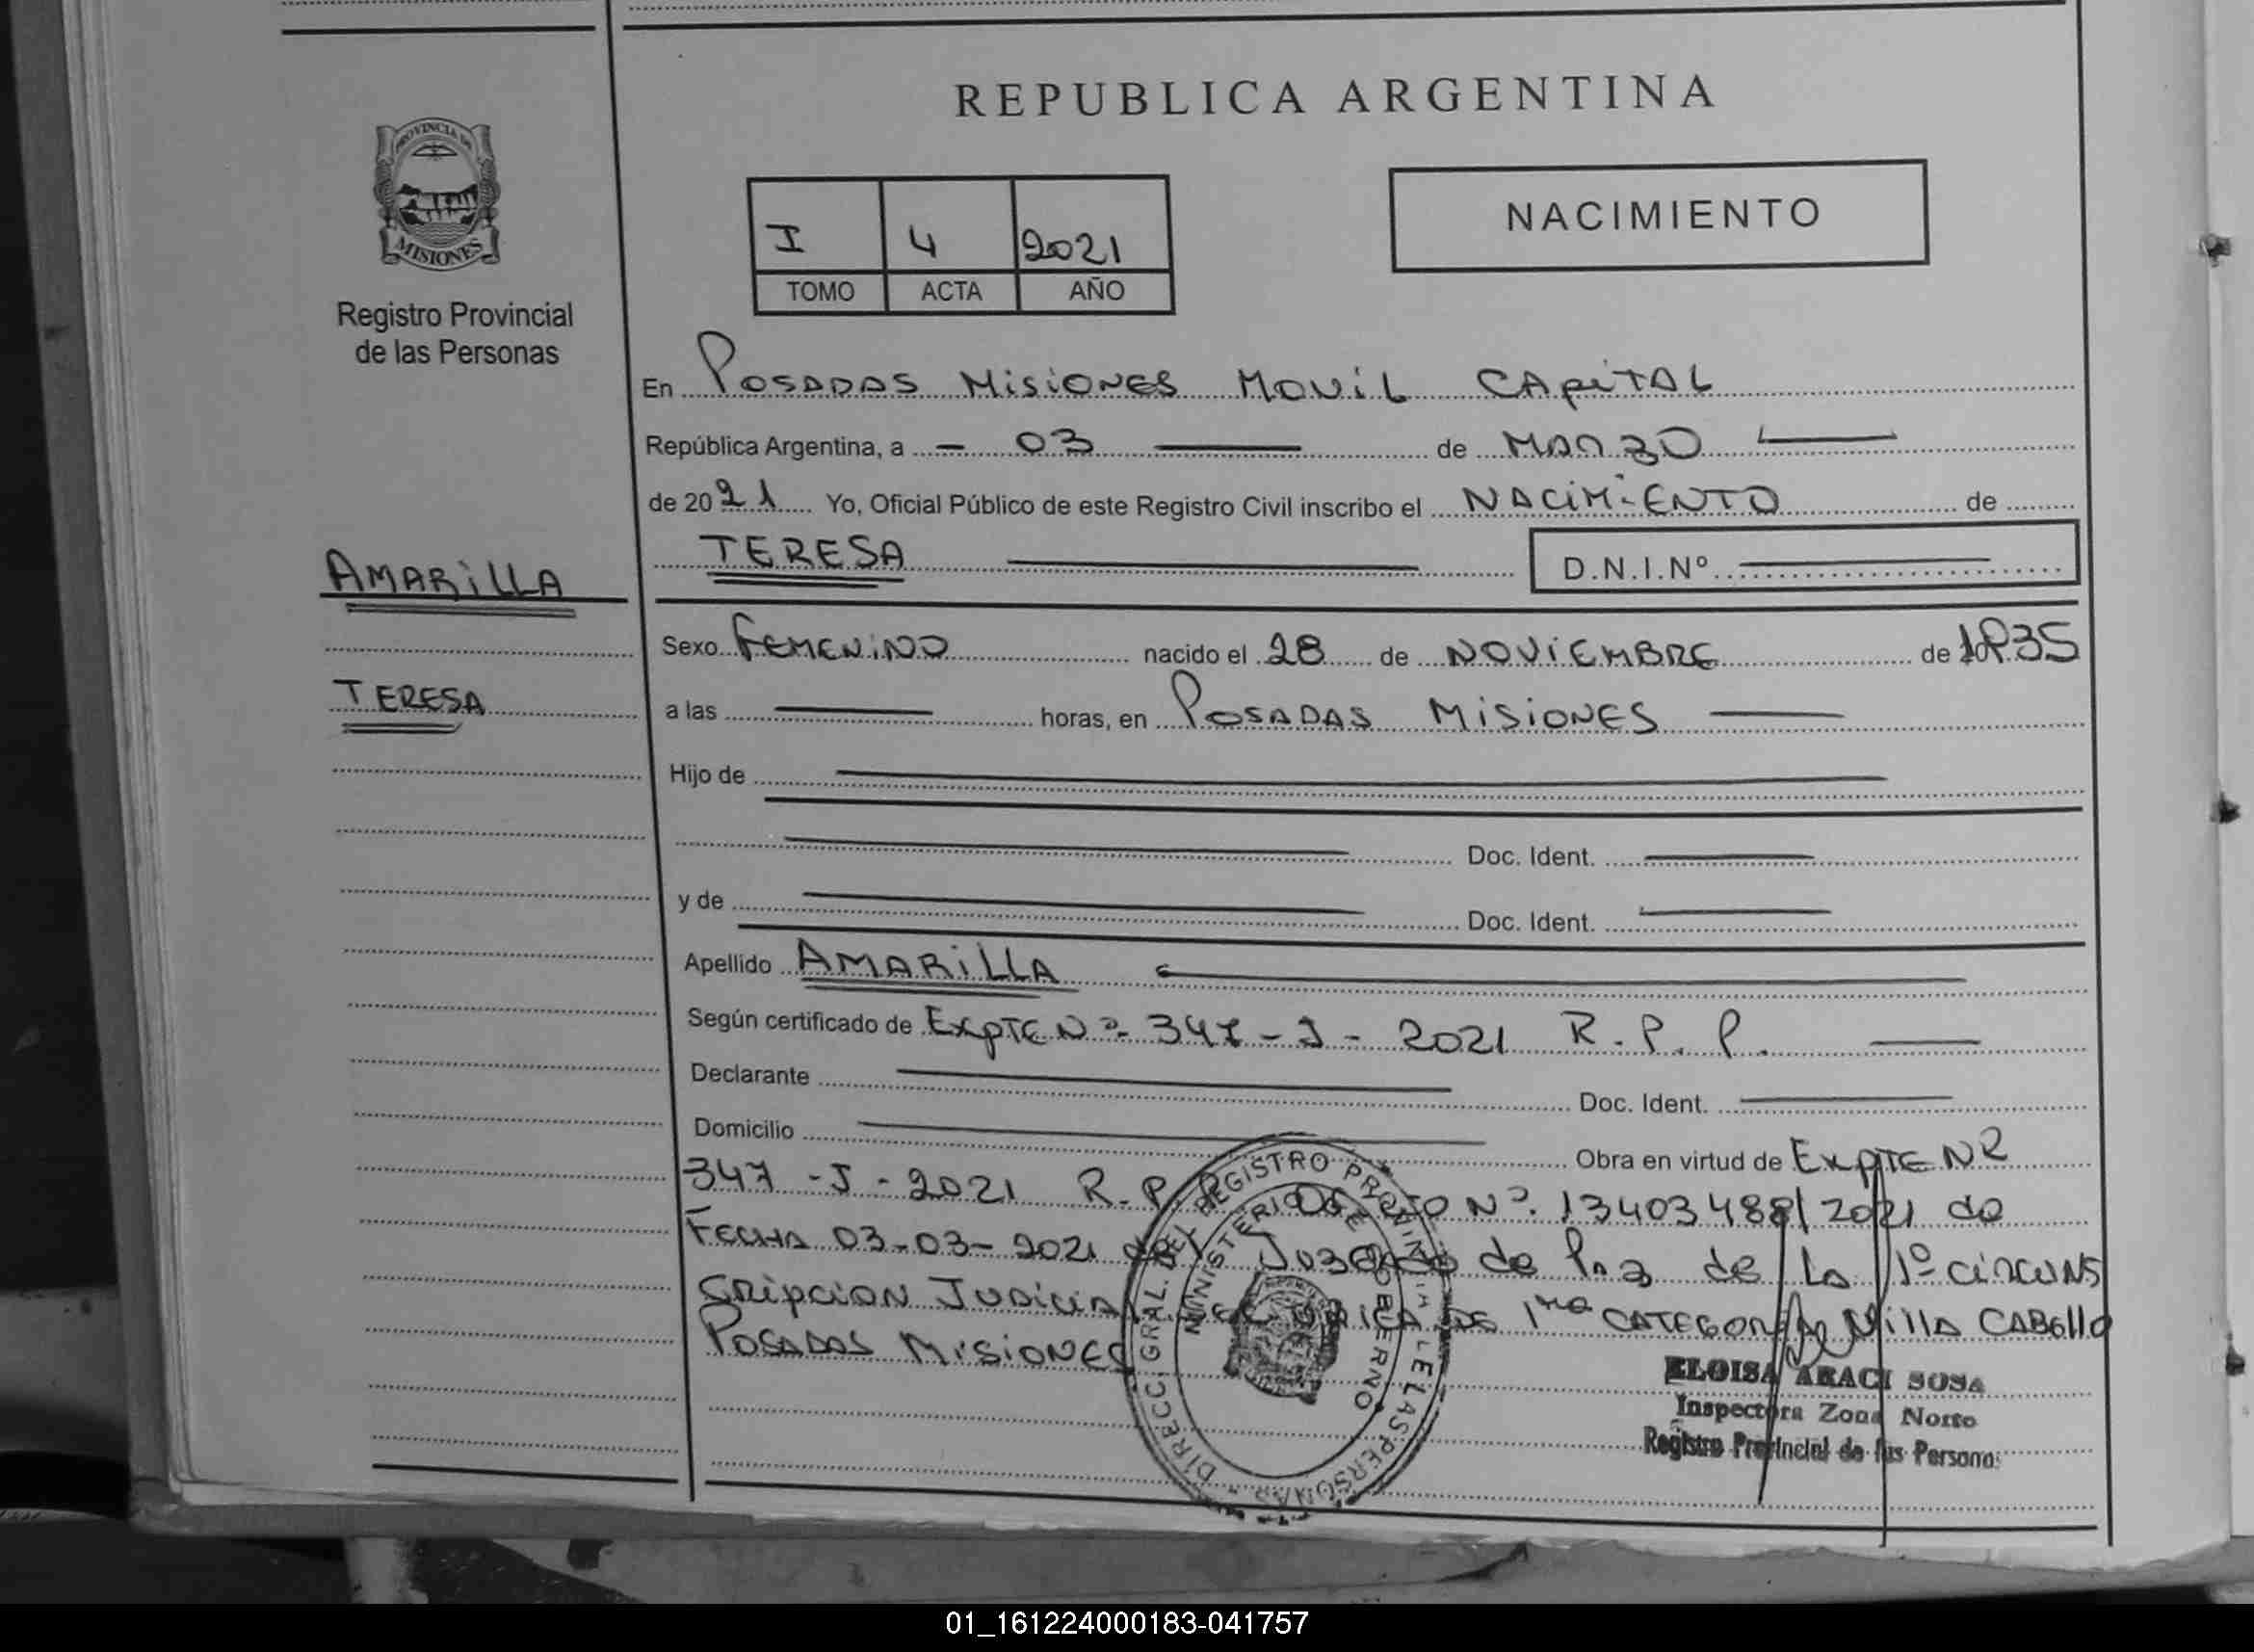 REPUBLICA ARGENTINA
PROVINCIA DE
MISIONES
Registro Provincial
de las Personas
I 4 2021
TOMO ACTA AÑO
NACIMIENTO
En POSADAS MISIONES MOVIL CAPITAL
República Argentina, a - 03 de MARZO
de 2021 Yo, Oficial Público de este Registro Civil inscribo el NACIMIENTO de
TERESA D.N.I.Nº
AMARILLA
Sexo FEMENINO nacido el 28 de NOVIEMBRE de 1935
TERESA
a las horas, en POSADAS MISIONES
Hijo de
Doc. Ident.
y de Doc. Ident.
Apellido AMARILLA
Según certificado de EXPTE Nº 347-J-2021 R.P.P.
Declarante Doc. Ident.
Domicilio
Obra en virtud de EXPTE NR
347-J-2021 R.P. Nº 13403488/2021 de
FECHA 03-03-2021 del Juzgado de Paz de La 1º CIRCUNS
CRIPCION JUDICIAL DE 1ra CATEGORIA de Villa CABELLO
POSADAS MISIONES
DIRECC. GRAL. DEL REGISTRO PROVINCIAL DE LAS PERSONAS
MINISTERIO DE GOBIERNO
ELOISA ARACI SOSA
Inspectora Zona Norte
Registro Provincial de las Personas
01_161224000183-041757